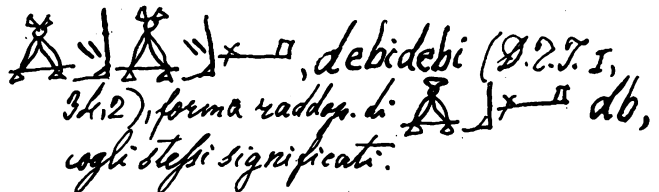 , debidebi (D.Z.T. I,
34,2), forma raddop. di db,
cogli steſsi significati.